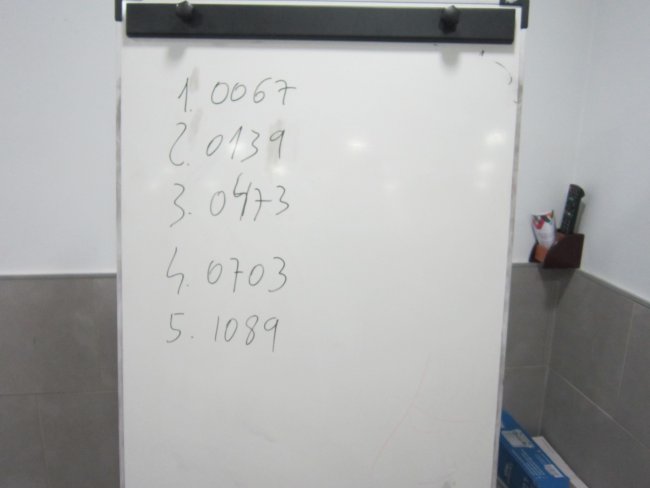 1. 0067
2. 0139
3. 0473
4. 0703
5. 1089